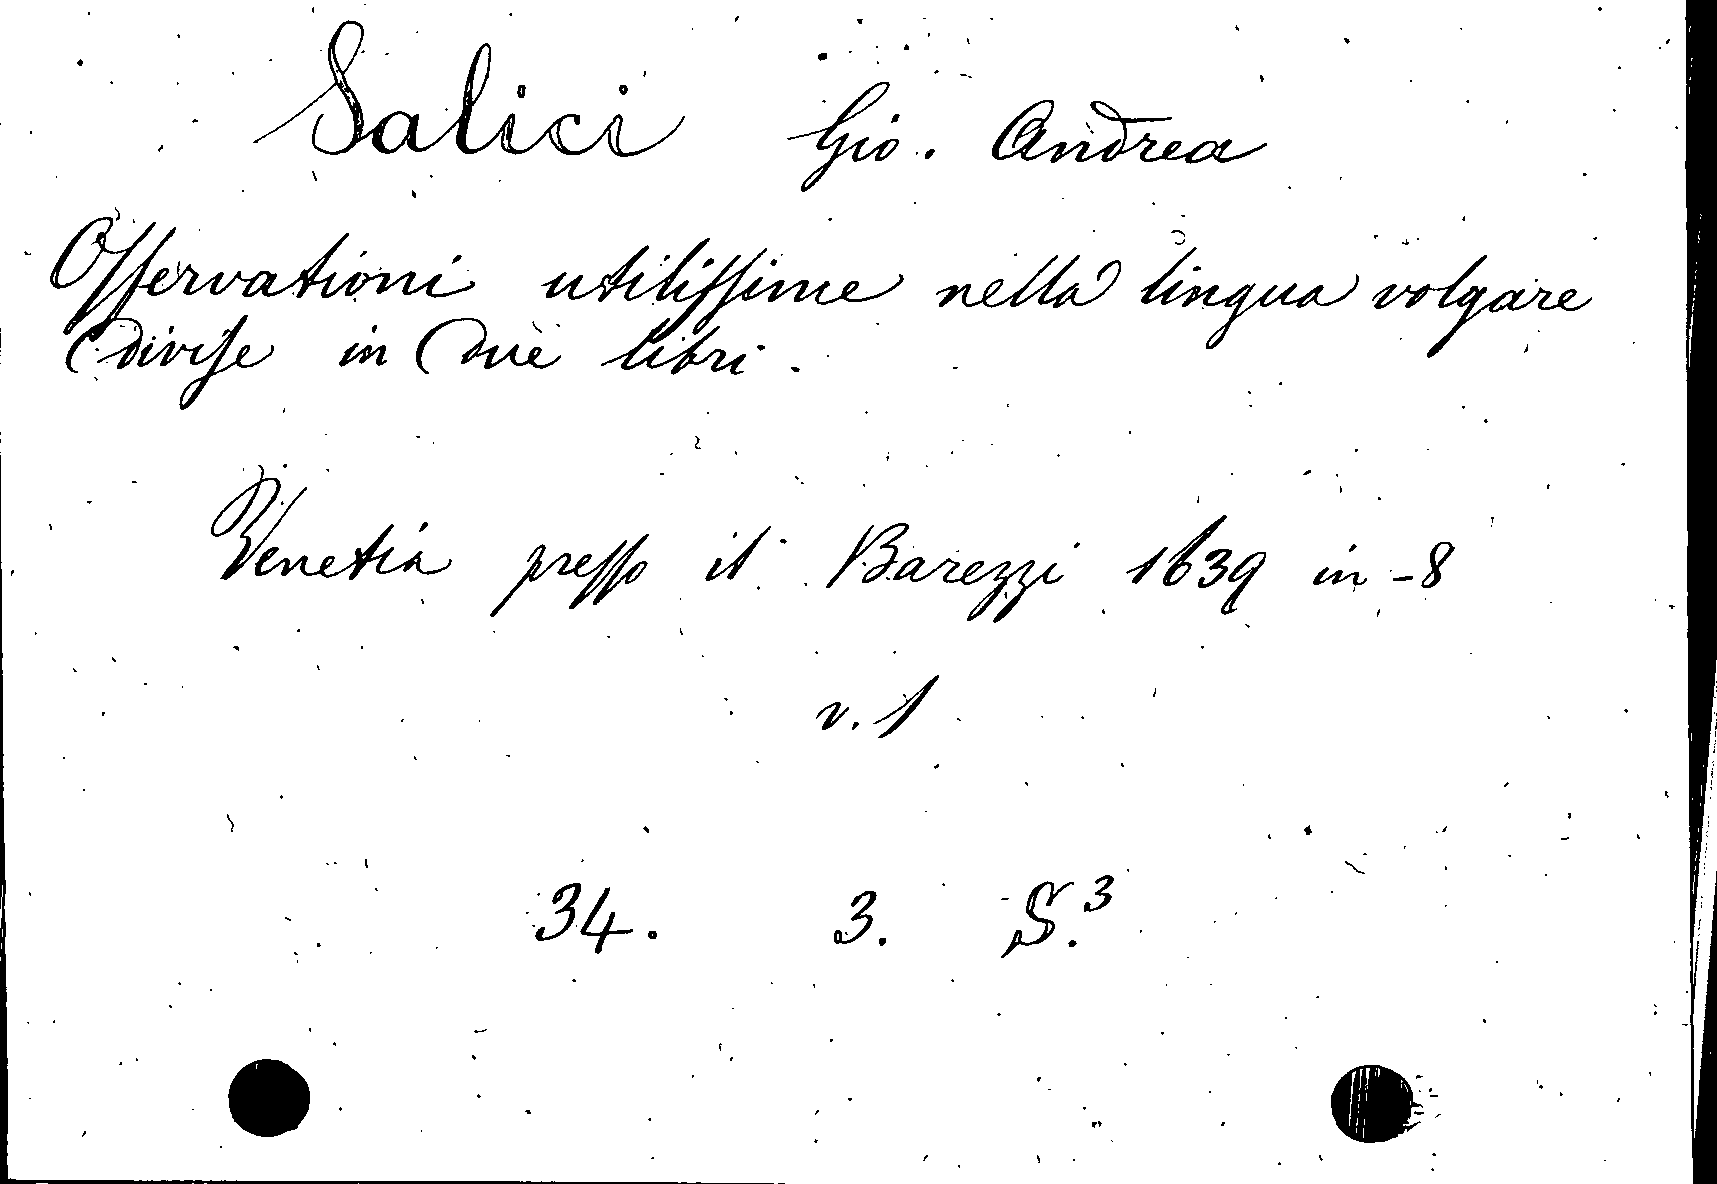 Salici Gio. Andrea
Osservationi utilissime nella lingua volgare
divise in due libri.
Venetia presso il Barezzi 1639 in-8
v. 1
34. 3. S.³